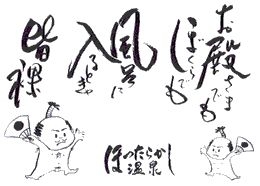 お殿さまでも
ぼくらでも
風呂に
入るときゃ
皆裸
ほったらかし
温泉